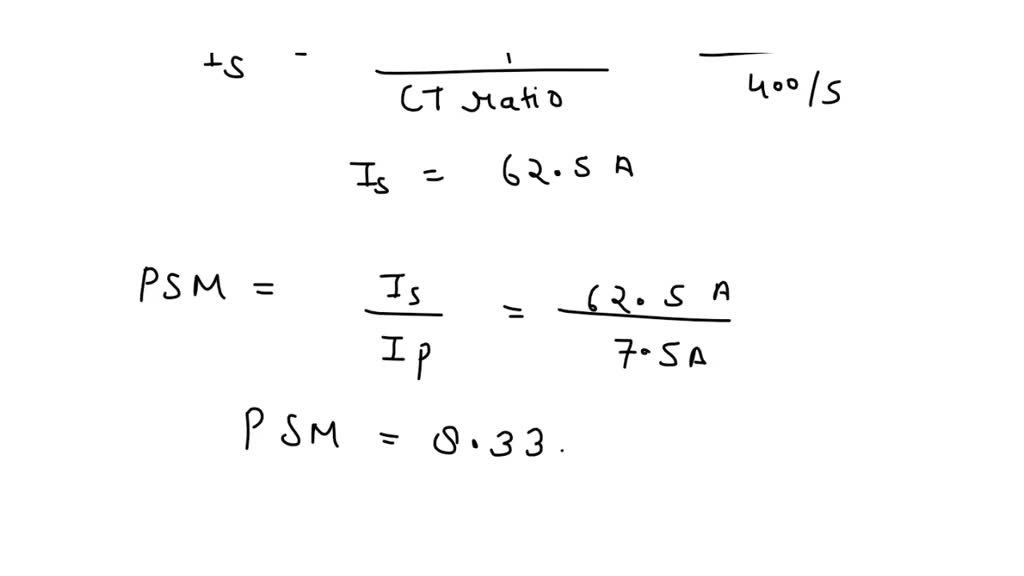 Is = 1 / CT ratio 400/5
Is = 62.5 A
PSM = Is / Ip = 62.5 A / 7.5A
PSM = 8.33.